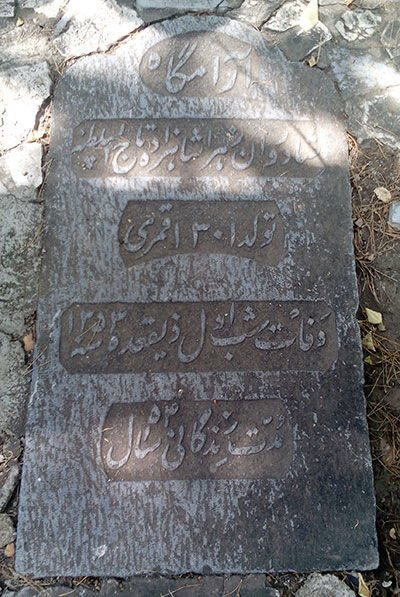 آرامگاه
شادروان زهرا شاهزاده تاج السلطنه
تولد ۱۳۰۱ قمری
وفات شب اول ذیقعده سنه ۱۳۵۳
مدت زندگانی ۵۲ سال